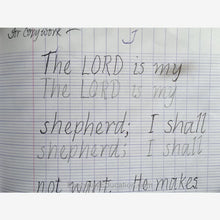 for Copywork –
J
The LORD is my
The LORD is my
shepherd; I shall
shepherd; I shall
not want. He makes